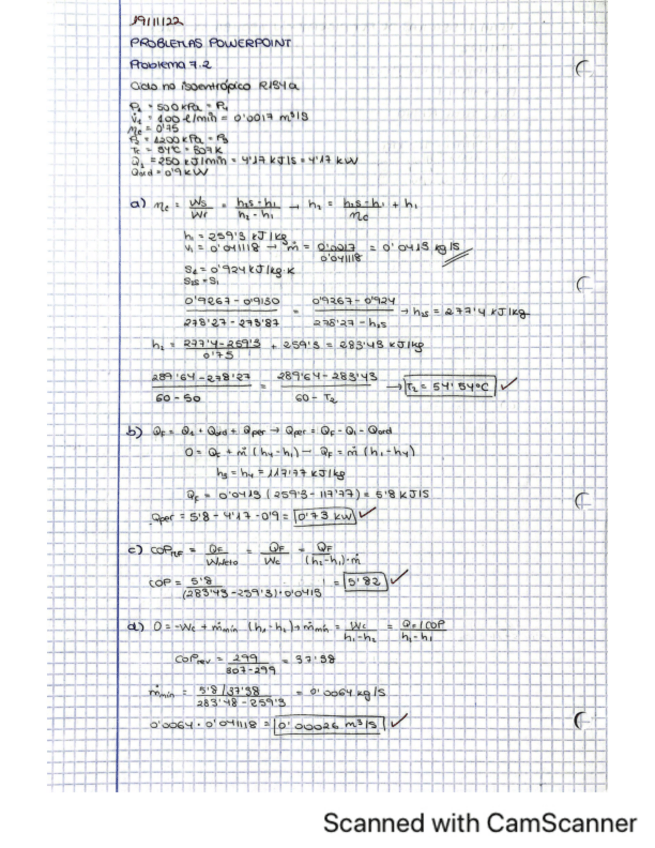 19/11/22
PROBLEMAS POWERPOINT
Problema 7.2
Ciclo no isoentrópico R134a
P₁ = 500 kPa = P₄
V̇₁ = 100 l/min = 0'0017 m³/s
ηc = 0'75
P₂ = 1200 kPa = P₃
Tc = 34ºC = 307 K
Q₁ = 250 kJ/min = 4'17 kJ/s = 4'17 kW
Qord = 0'9 kW
a) ηc = Ws/Wr = h₂s - h₁/h₂ - h₁ → h₂ = h₂s - h₁/ηc + h₁
h₁ = 259'3 kJ/kg
v₁ = 0'041118 → ṁ = 0'0017/0'041118 = 0'0413 kg/s
S₁ = 0'924 kJ/kg·K
S₂s = S₁
0'9267 - 0'9130/278'27 - 273'87 = 0'9267 - 0'924/278'27 - h₂s → h₂s = 277'4 kJ/kg
h₂ = 277'4 - 259'3/0'75 + 259'3 = 283'43 kJ/kg
289'64 - 278'27/60 - 50 = 289'64 - 283'43/60 - T₂ → T₂ = 54'54ºC ✓
b) QF = Q₁ + Qord + Qper → Qper = QF - Q₁ - Qord
0 = QF + ṁ (h₄ - h₁) → QF = ṁ (h₁ - h₄)
h₃ = h₄ = 117'77 kJ/kg
QF = 0'0413 (259'3 - 117'77) = 5'8 kJ/s
Qper = 5'8 - 4'17 - 0'9 = 0'73 kW ✓
c) COP = QF/ = QF/Wc = QF/(h₂ - h₁)·ṁ
COP = 5'8/(283'43 - 259'3)·0'0413 = 5'82 ✓
d) 0 = -Wc + ṁmín (h₁ - h₂) → ṁmín = Wc/h₁ - h₂ = QF/COP/h₂ - h₁
COPrev = 299/307 - 299 = 37'38
ṁmín = 5'8/37'38/283'48 - 259'3 = 0'0064 kg/s
0'0064 · 0'041118 = 0'00026 m³/s ✓
Scanned with CamScanner